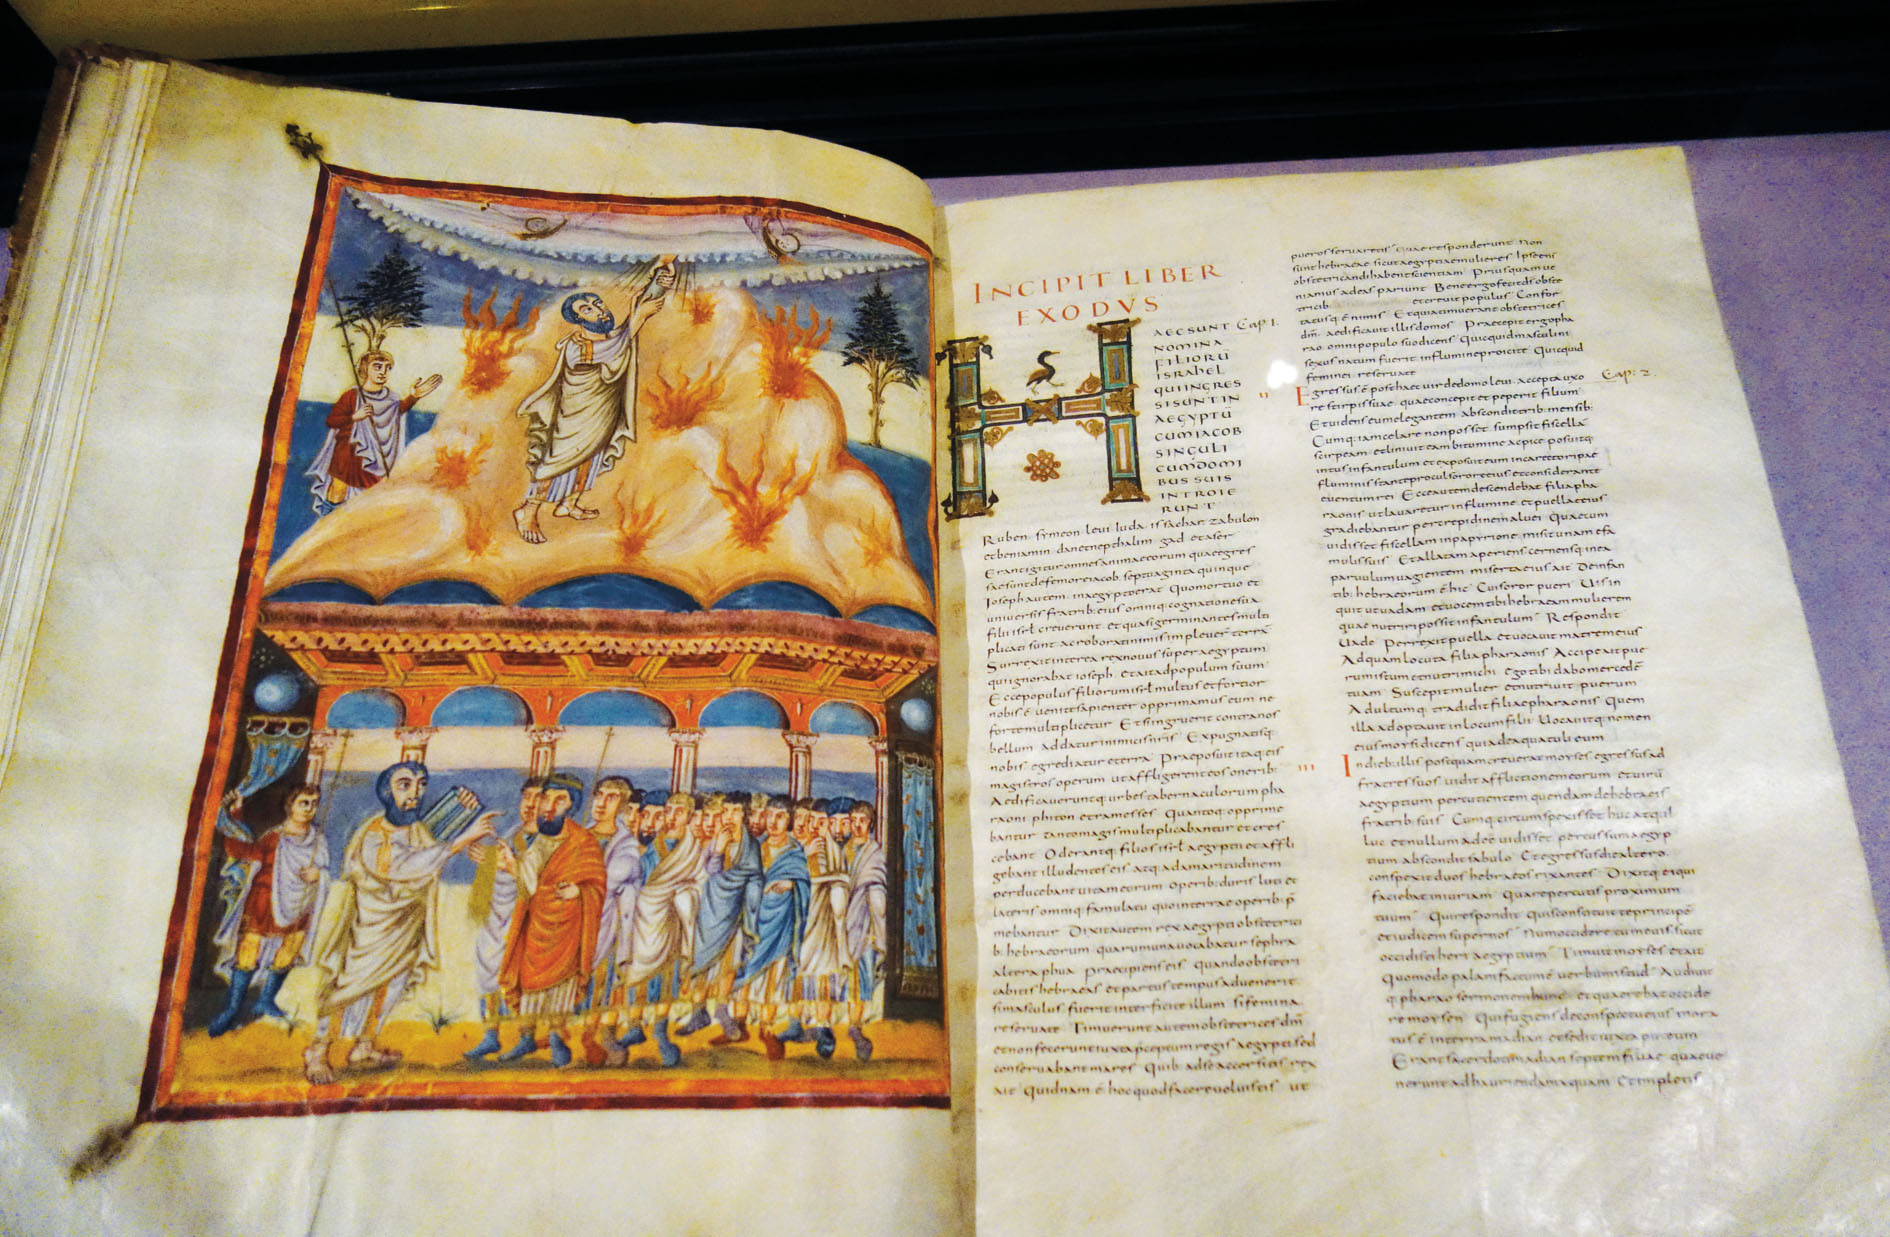 INCIPIT LIBER
EXODVS
HAEC SUNT Cap 1.
NOMINA
FILIORU
ISRAHEL
QUI INGRES
SI SUNT IN
AEGYPTU
CUM IACOB
SINGULI
CUM DOMI
BUS SUIS
INTROIE
RUNT
Ruben symeon leui iuda issachar zabulon
et beniamin dan et nepthalim gad et aser
Erant igitur omnes animae eorum quae egres
sae sunt de femore iacob septuaginta quinque
Ioseph autem in aegypto erat Quo mortuo et
uniuersis fratrib; eius omniq; cognatione sua
filii isrl creuerunt et quasi germinantes multi
plicati sunt ac roborati nimis impleuer terra
Surrexit interea rex nouus super aegyptum
qui ignorabat ioseph et ait ad populum suum
Ecce populus filiorum isrl multus et fortior
nobis e uenite sapienter opprimamus eum ne
forte multiplicetur Et si ingruerit contra nos
bellum addatur inimicis nris Expugnatisq;
nobis egrediatur e terra Praeposuit itaq; eis
magistros operum ut affligerent eos onerib;
Aedificaueruntq; urbes tabernaculorum pha
raoni phiton et ramesses Quantoq; opprime
bantur tanto magis multiplicabantur et cres
cebant Oderantq; filios isrl aegyptii et affli
gebant illudentes eis atq; ad amaritudinem
perducebant uitam eorum operib; duris luti et
lateris omniq; famulatu quo in terrae operib; p
mebantur Dixit autem rex aegypti obstetrici
b; hebraeorum quarum una uocabatur sephra
altera phua Praecipiens eis Quando obstetri
cabitis hebraeas et partus tempus aduenerit
si masculus fuerit interficite illum si femina
reseruate Timuerunt autem obstetrices dm
et non fecerunt iuxta pceptum regis aegypti sed
conseruabant mares Quib; ad se accersitis rex
ait Quidnam e hoc quod facere uoluistis ut
pueros seruaretis Quae responderunt Non
sunt hebraeae sicut aegyptiae mulieres Ipse eni
obstetricandi habent scientiam Priusquam ue
niamus ad eas pariunt Bene ergo fecit ds obste
tricib; et creuit populus Confor
tatusq; e nimis Et quia timuerant obstetrices
dm aedificauit illis domos Praecepit ergo pha
rao omni populo suo dicens Quicquid masculini
sexus natum fuerit in flumine proicite Quicquid
feminei reseruate
II Egressus e post haec uir de domo leui accepta uxo Cap: 2.
re stirpis suae quae concepit et peperit filium
Et uidens eum elegantem abscondit trib; mensib;
Cumq; iam celare non posset sumpsit fiscella
scirpeam et liniuit eam bitumine ac pice posuitq;
intus infantulum et exposuit eum in carecto ripae
fluminis stante procul sorore eius et considerante
euentum rei Ecce autem descendebat filia pha
raonis ut lauaretur in flumine et puellae eius
gradiebantur per crepidinem aluei Quae cum
uidisset fiscellam in papyrione misit unam e fa
mulis suis Et allatam aperiens cernensq; in ea
paruulum uagientem miserta eius ait De infan
tib; hebraeorum e hic Cui soror pueri Uis in
quit ut uadam et uocem tibi hebraeam mulierem
quae nutrire possit infantulum Respondit
Uade Perrexit puella et uocauit matrem eius
Ad quam locuta filia pharaonis Accipe ait pue
rum istum et nutri mihi Ego tibi dabo mercede
tuam Suscepit mulier et nutriuit puerum
Adultumq; tradidit filiae pharaonis Quem
illa adoptauit in locum filii Uocauitq; nomen
eius morsi dicens quia de aqua tuli eum
III In dieb; illis postquam creuerat morses egressus ad
fratres suos uidit afflictionem eorum et uiru
aegyptium percutientem quendam de hebraeis
fratrib; suis Cumq; circumspexisset huc atq; il
luc et nullum adee uidisset percussum aegyp
tium abscondit sabulo Et egressus die altero
conspexit duos hebraeos rixantes Dixitq; ei qui
faciebat iniuriam Quare percutis proximum
tuum Qui respondit Quis constituit te principe
et iudicem super nos Num occidere tu me uis sicut
occidisti heri aegyptium Timuit morses et ait
Quomodo palam factum e uerbum istud Audiuit
q; pharao sermonem hunc et quaerebat occide
re morsen Qui fugiens de conspectu eius mora
tus e in terra madian et sedit iuxta puteum
Erant sacerdoti madian septem filiae quae ue
nerunt ad hauriendam aquam Et impletis